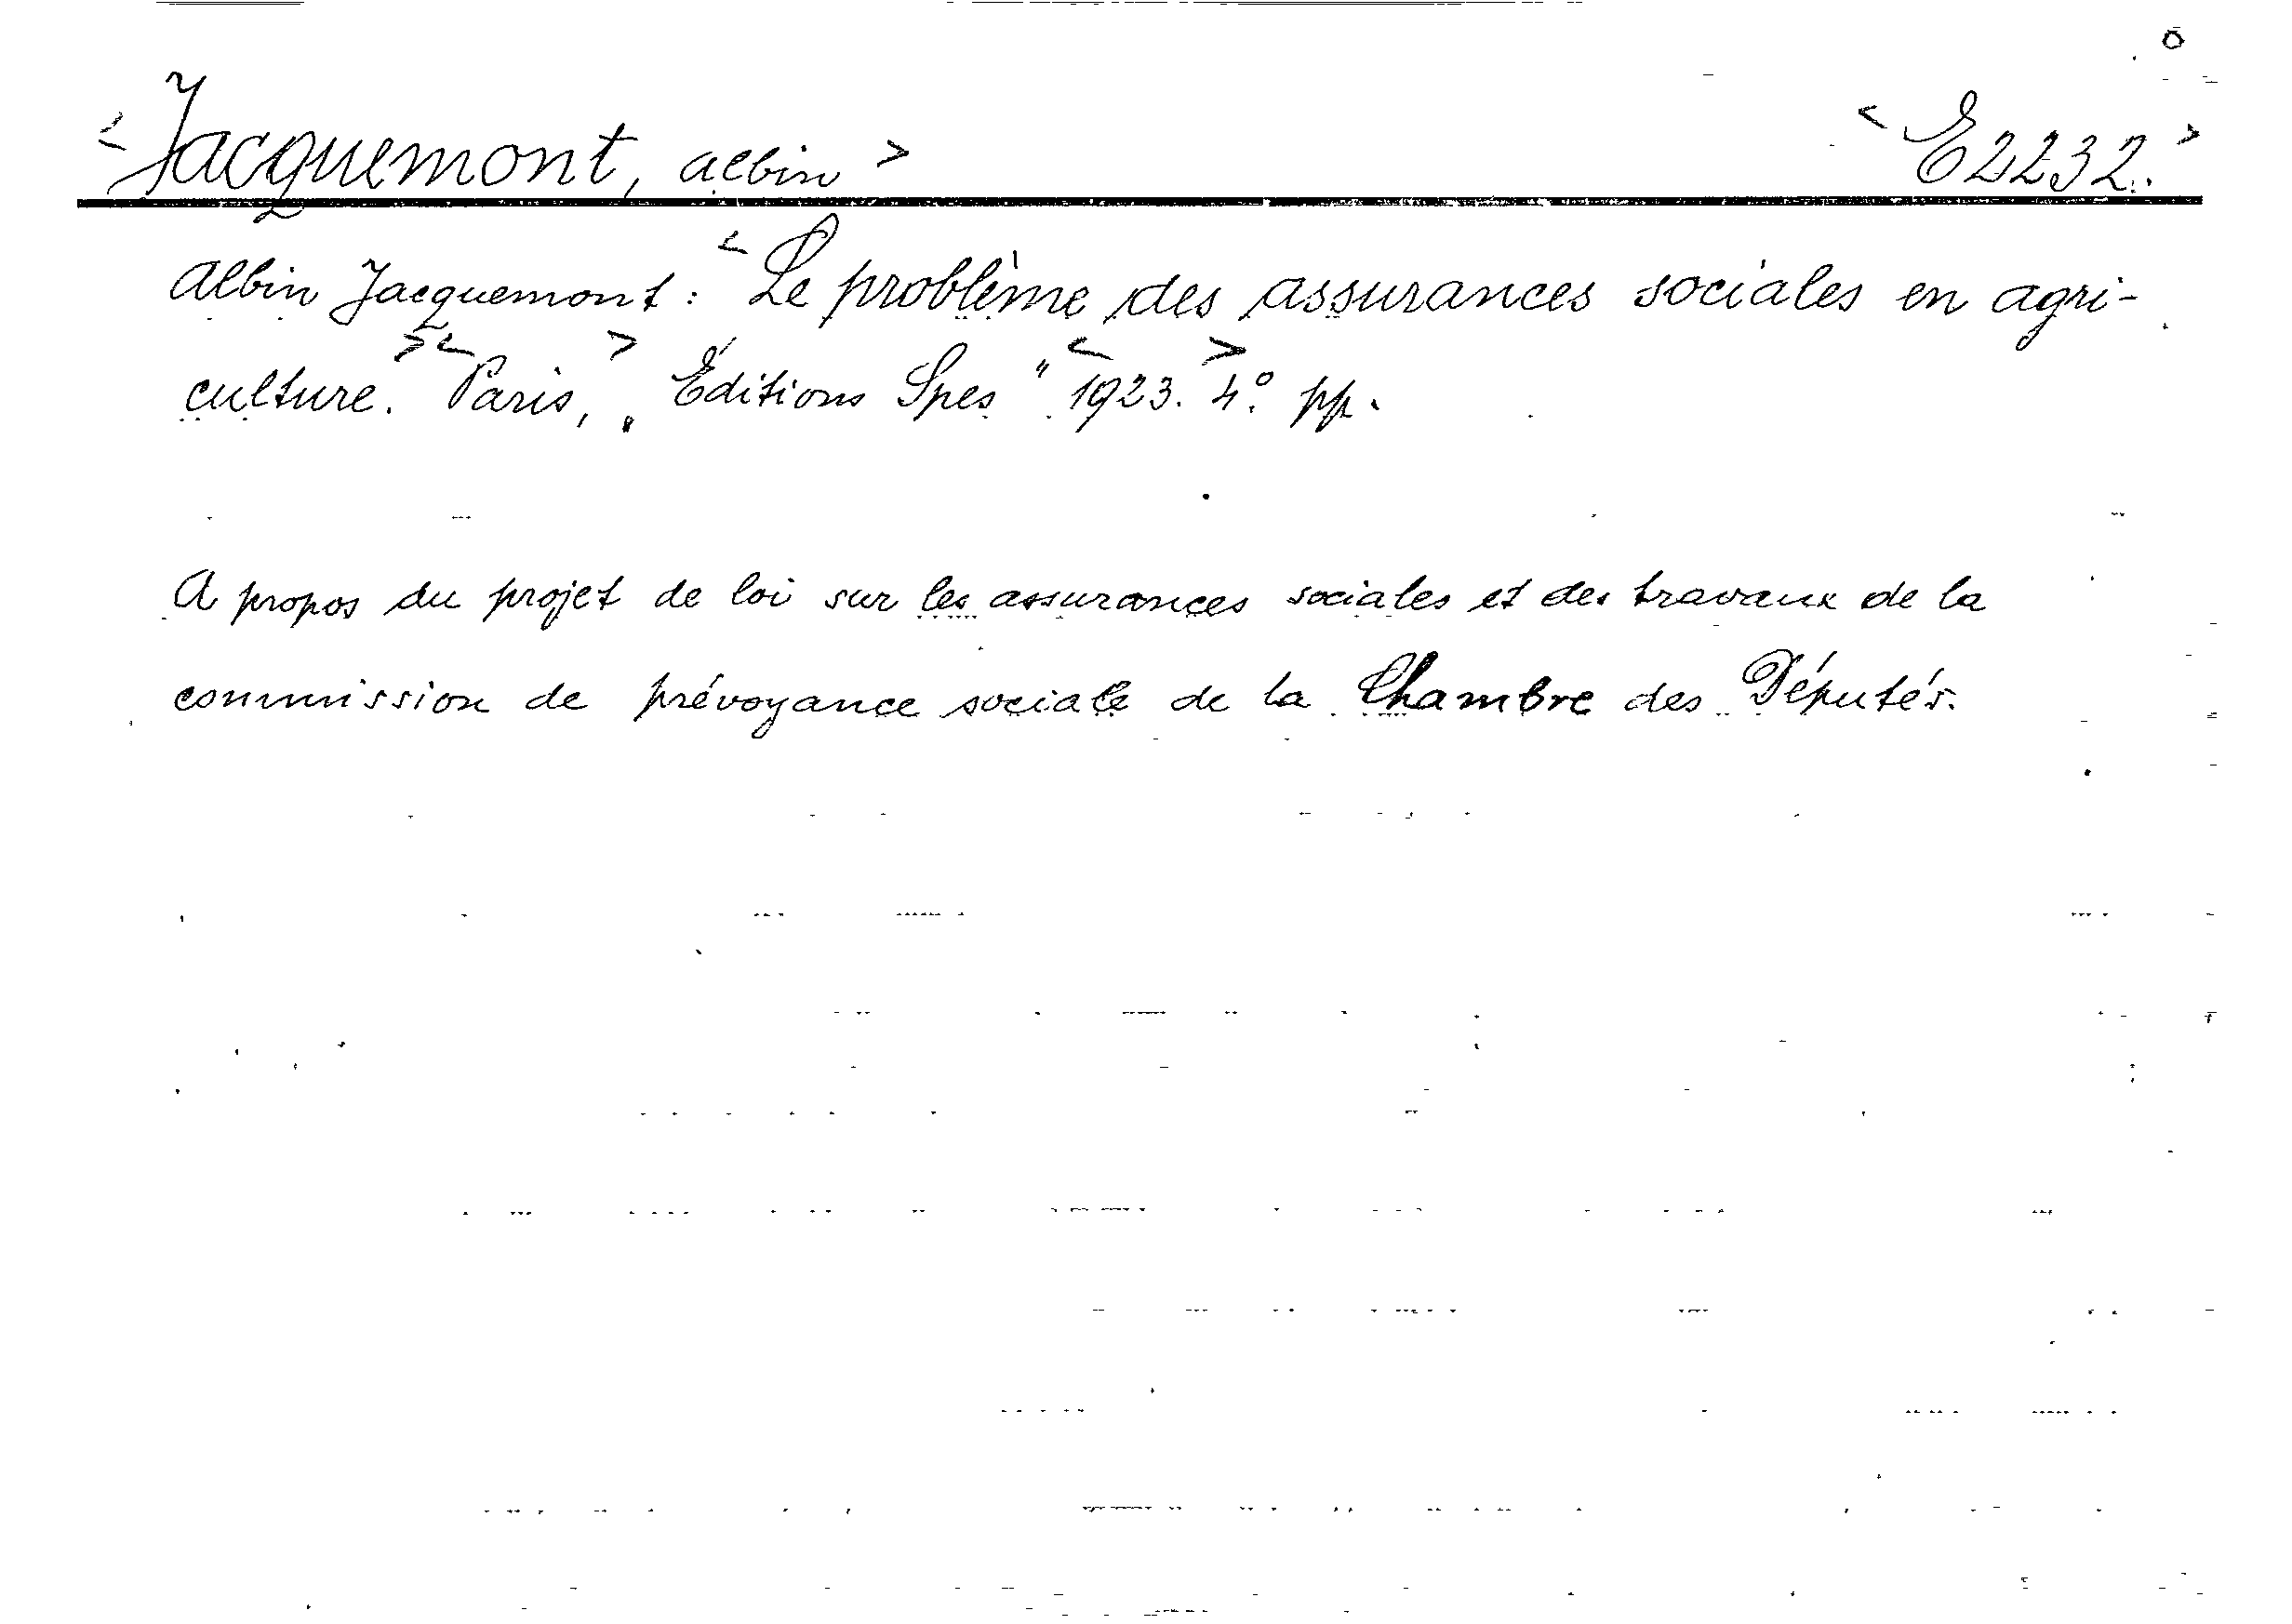 <Jacquemont, Albin> <E2232.>
Albin Jacquemont: <Le problème des assurances sociales en agri-
culture.> <Paris,> „Éditions Spes" <1923.> 4° pp.
A propos du projet de loi sur les assurances sociales et des travaux de la
commission de prévoyance sociale de la Chambre des Députés.